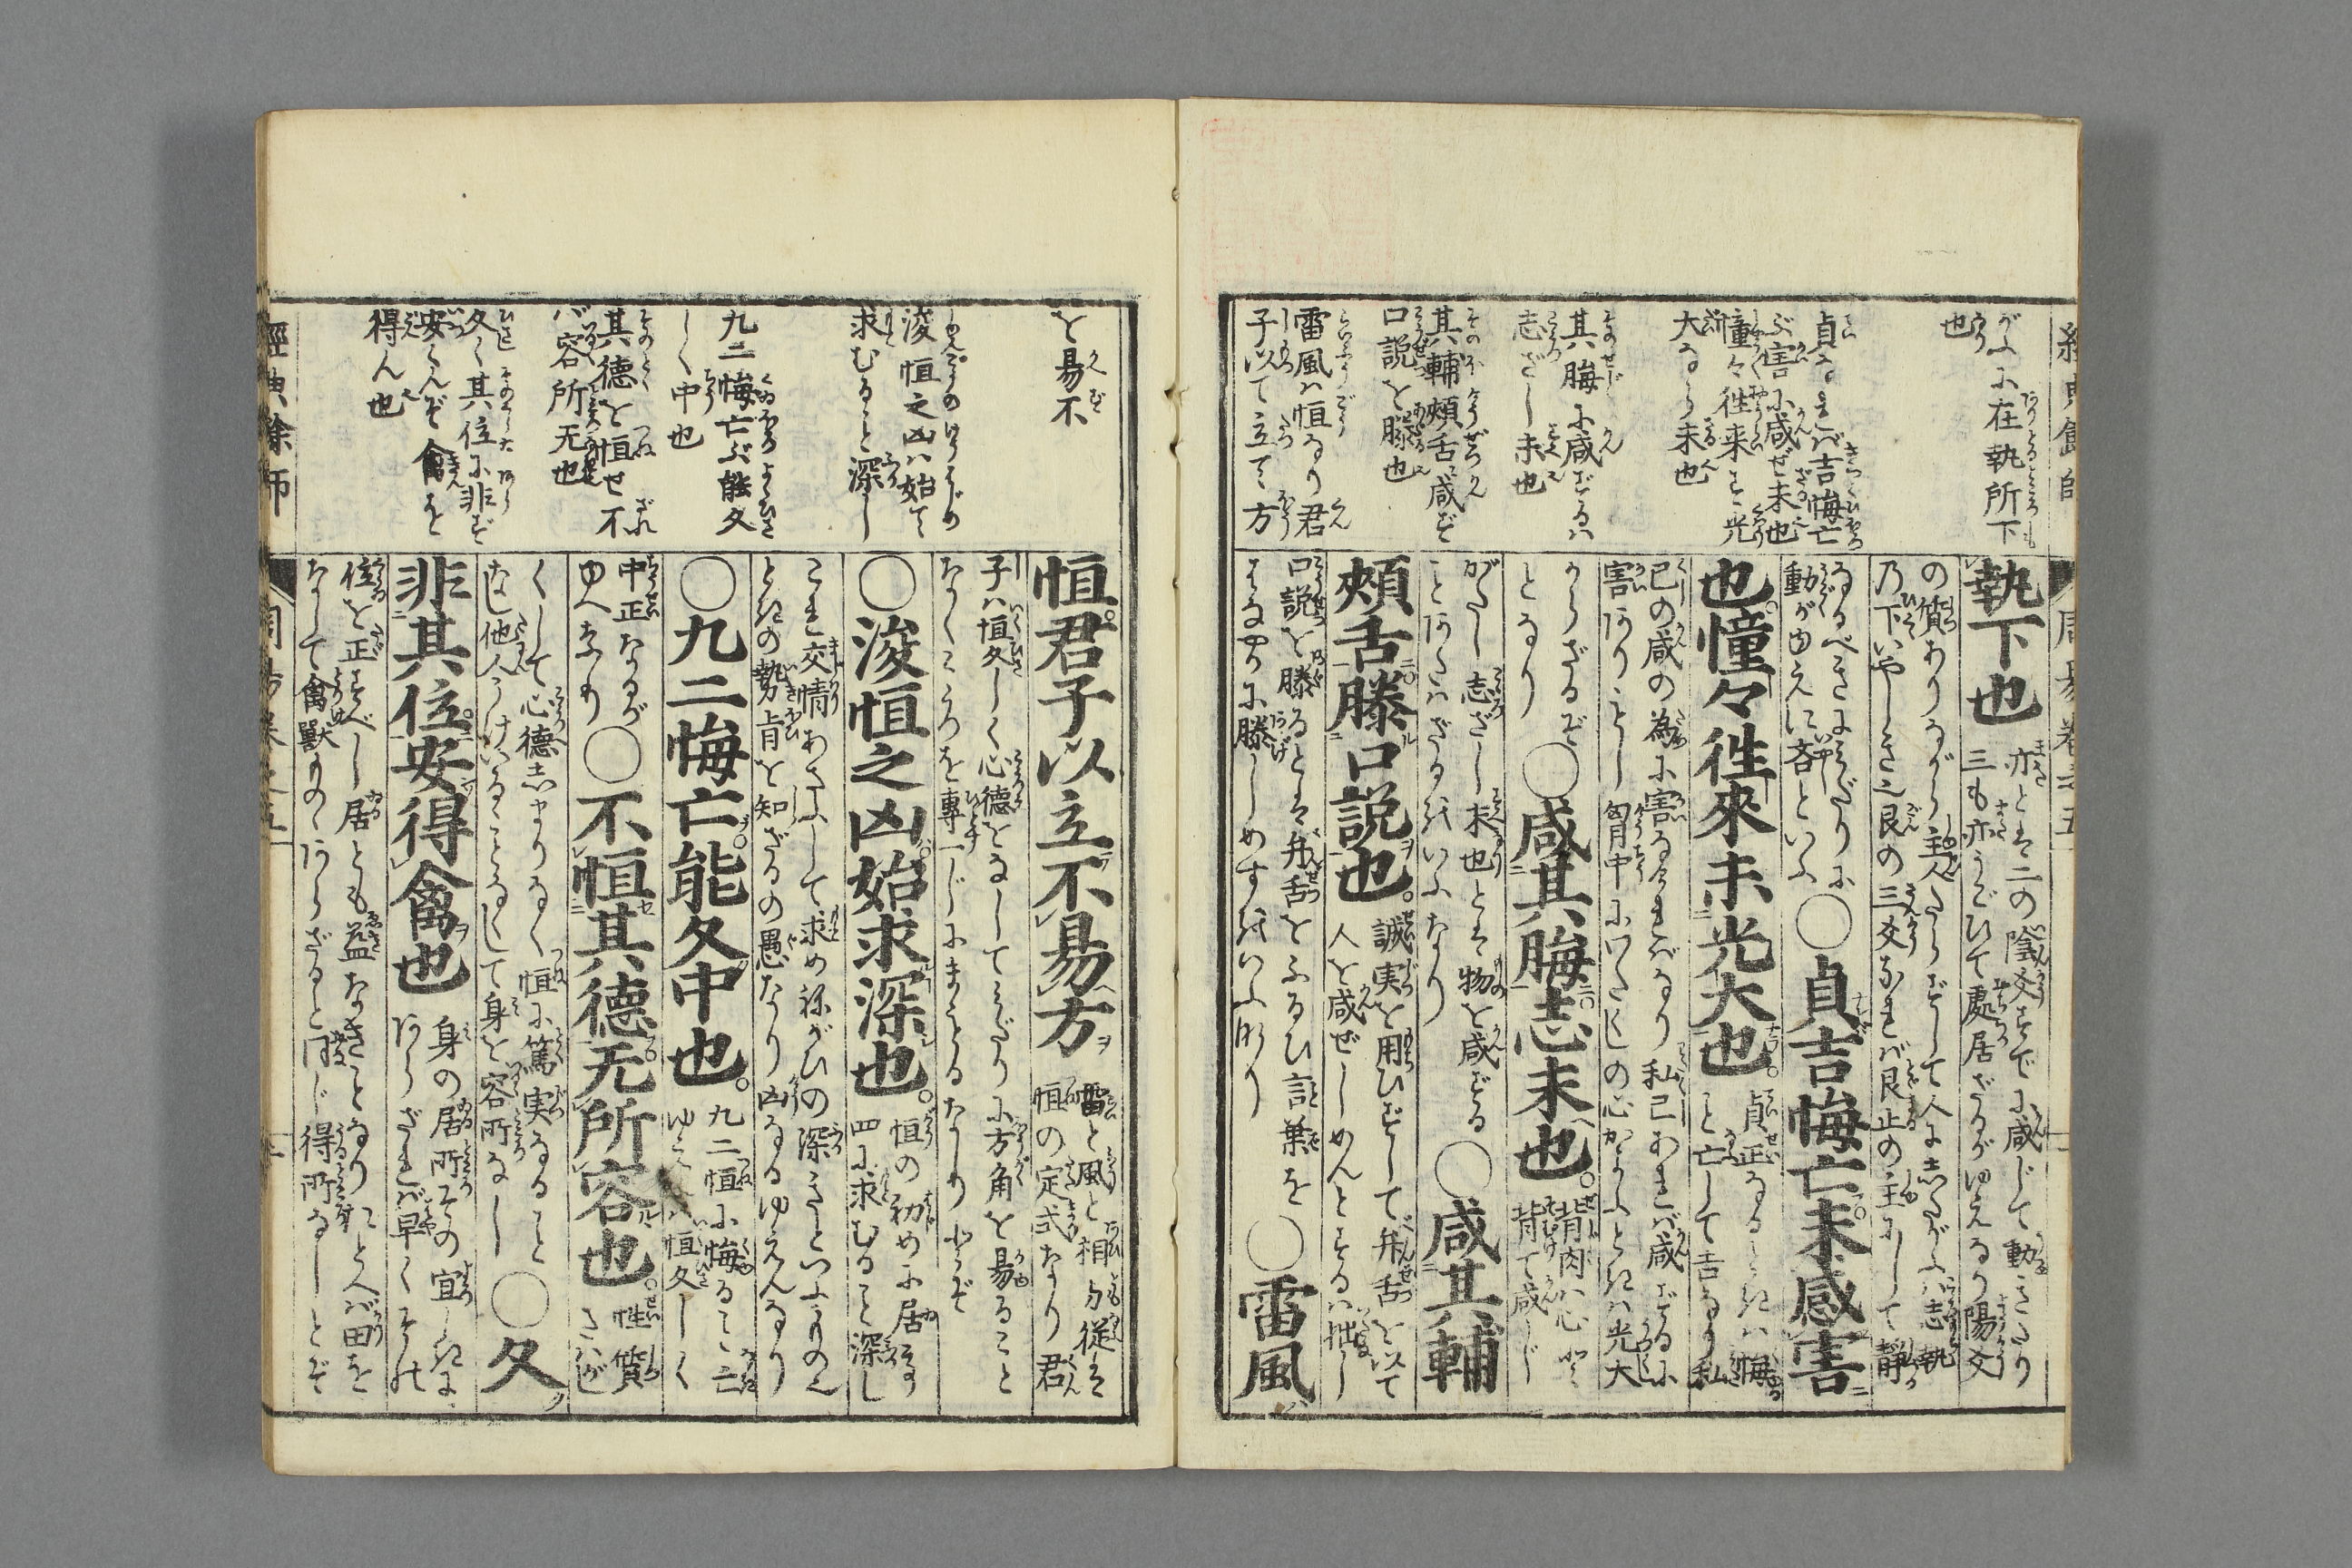 經典餘師
周易卷之五
がふに在執所下
也
貞なれば吉悔亡
ぶ害に感ぜ未也
憧々往来す光
大なら未也
其脢に咸ずるハ
志ざし末也
其輔頰舌に咸ず
口説を滕也
雷風ハ恒なり君
子以て立て方
執下也
亦とは二の陰爻すでに感じて動きたり
三も亦うごひて處居ざるがゆえなり陽爻
の質ありながら主人たらずして人にしたがふハ志執
乃下いやしき之艮の三爻なれば艮止の主にして静
なるべきにみだりに
動がゆえに吝といふ
○貞吉悔亡未感害
也憧々往來未光大也
貞正なるときハ悔
こと亡して吉なり私
已の咸の為に害なければなり私己あれば感ずるに
害ありとし胸中にいたしの心かよふときハ光大
からざるぞ
となり
○咸其脢志末也
背肉ハ心と
背て感じ
がたし志ざし末也とは物を感ずる
ことあたハざるをいふなり
○咸其輔
頰舌滕口説也
誠実を用ひずして弁舌を以て
人を感ぜしめんとするハ拙し
口説を滕るとは弁舌をふるひ言葉を
はなやかに滕しめすをいふ而り
○雷風
を易不
浚恒之凶ハ始て
求むること深し
九二悔亡ぶ能久
しく中也
其德を恒せ不
バ容所无也
久く其位に非ず
安くんぞ禽を
得ん也
恒君子以立不易方
雷と風と相与従は
恒の定式なり君
子ハ恒久しく心德をなして みだりに方角を易ること
なくこころを專一じにまもるなり
○浚恒之凶始求深也
恒の初めに居なり
四に求むること深し
これ交情あさふして求めねがひの深きといふものん
ときの勢肯を知ざるの愚なり凶なるゆえんなり
○九二悔亡能久中也
九二恒に悔ること亡
ゆえんハ恒久しく
中正なるが
ゆへなり
○不恒其德无所容也
性質
さハが
くして心德さだまりなく恒に篤実なること
なし他人うけいることなくして身を容所なし
○久
非其位安得禽也
身の居所その宜しきに
あらざれば早くその
位を正すべし居とも益なきことなりたとへバ田を
なして禽獸ものあらざると同じ得所なしとぞ
經典餘師
周易卷之五